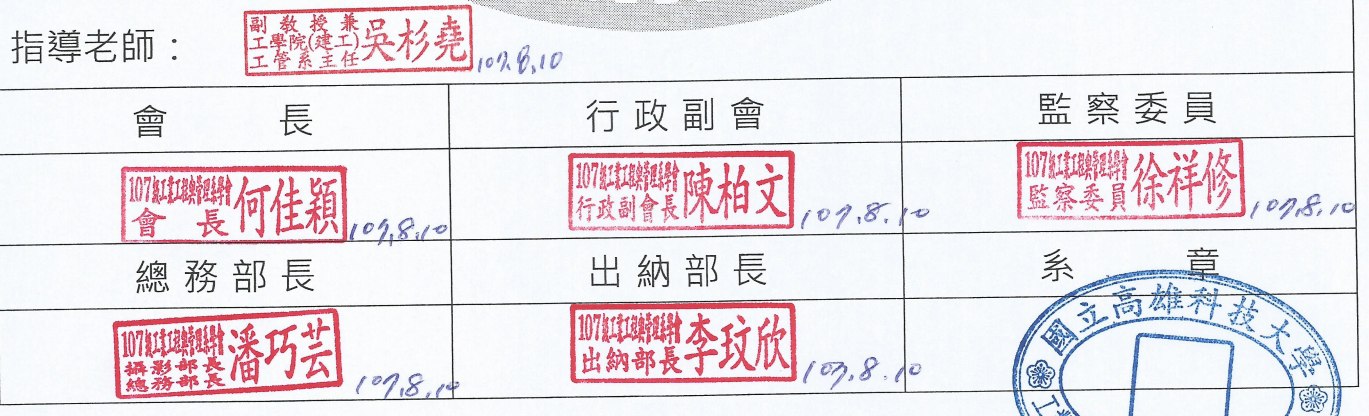 指導老師：
副教授兼
工學院(建工)
工管系主任
吳杉堯
107.8.10
會 長
行政副會
監察委員
107級工業工程與管理系學會
會 長
何佳穎
107.8.10
107級工業工程與管理系學會
行政副會長
陳柏文
107.8.10
107級工業工程與管理系學會
監察委員
徐祥修
107.8.10
總務部長
出納部長
系 章
107級工業工程與管理系學會
攝影部長
總務部長
潘巧芸
107.8.10
107級工業工程與管理系學會
出納部長
李玟欣
107.8.10
國立高雄科技大學